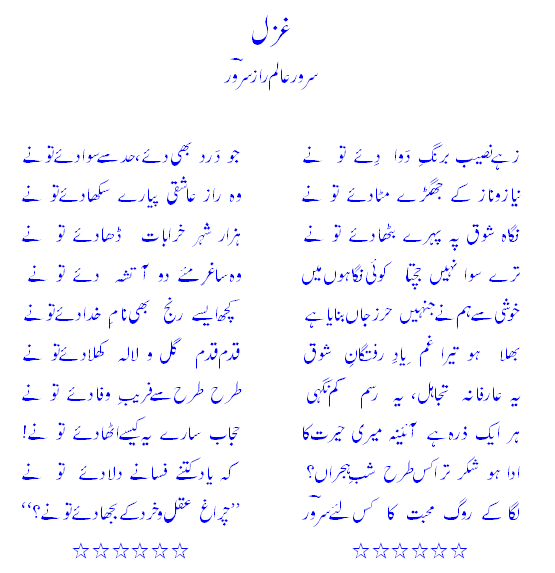 غزل
سرور عالم راز سرورؔ
زہے نصیب برنگِ دَوا دِئے تو نے جو دَرد بھی دئے، حد سے سوا دئے تو نے
نیاز و ناز کے جھگڑے مٹا دئے تو نے وہ راز عاشقی پیارے سکھا دئے تو نے
نگاہ شوق پہ پہرے بٹھا دئے تو نے ہزار شہر خرابات ڈھا دئے تو نے
ترے سوا نہیں جچتا کوئی نگاہوں میں وہ ساغر مئے دو آتشہ دئے تو نے
خوشی سے ہم نے جنہیں حرز جاں بنایا ہے کچھ ایسے رنج بھی نامِ خدا دئے تو نے
بھلا ہو تیرا غمِ یادِ رفتگانِ شوق قدم قدم گل و لالہ کھلا دئے تو نے
یہ عارفانہ تجاہل، یہ رسم کم نگہی طرح طرح سے فریبِ وفا دئے تو نے
ہر ایک ذرہ ہے آئینہ میری حیرت کا حجاب سارے یہ کیسے اٹھا دئے تو نے!
ادا ہو شکر ترا کس طرح شبِ ہجراں؟ کہ یاد کتنے فسانے دلا دئے تو نے
لگا کے روگ محبت کا کس لئے سرورؔ ’’چراغ عقل و خرد کے بجھا دئے تو نے؟‘‘
☆☆☆☆☆☆ ☆☆☆☆☆☆